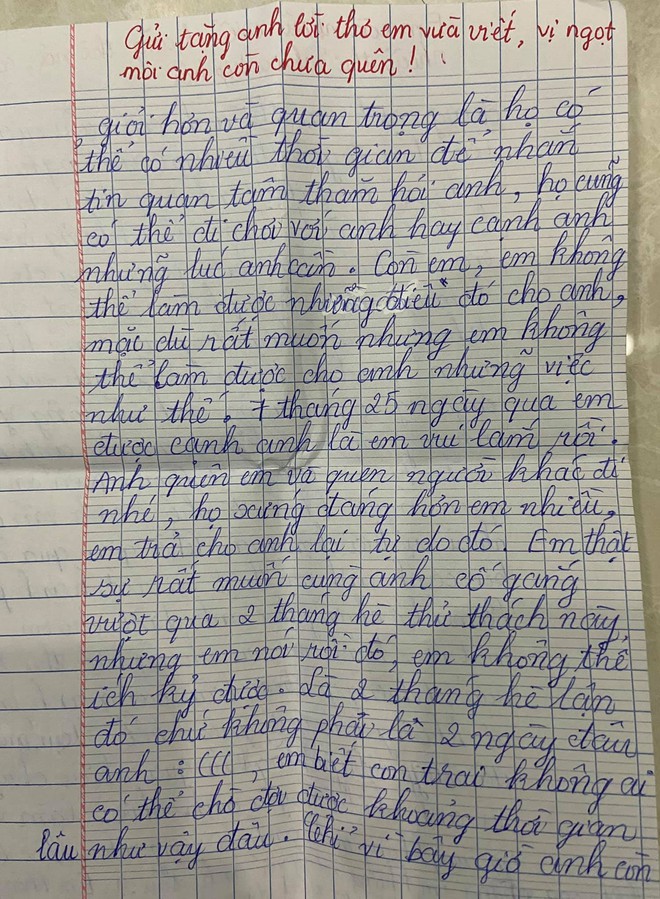 Gửi tặng anh lời thơ em vừa viết, vị ngọt
môi anh còn chưa quên !
giỏi hơn và quan trọng là họ có
thể có nhiều thời gian để nhắn
tin quan tâm thăm hỏi anh, họ cũng
có thể đi chơi với anh hay cạnh anh
những lúc anh cần. Còn em, em không
thể làm được những điều đó cho anh,
mặc dù rất muốn nhưng em không
thể làm được cho anh những việc
như thế. 7 tháng 25 ngày qua em
được cạnh anh là em vui lắm rồi.
Anh quên em và quen người khác đi
nhé, họ xứng đáng hơn em nhiều,
em trả cho anh lại tự do đó. Em thật
sự rất muốn cùng anh cố gắng
vượt qua 2 tháng hè thử thách này,
nhưng em nói rồi đó, em không thể
ích kỷ được. Là 2 tháng hè lận
đó chứ không phải là 2 ngày đâu
anh :(((, em biết con trai không ai
có thể chờ đợi được khoảng thời gian
lâu như vậy đâu. Chỉ vì bây giờ anh còn